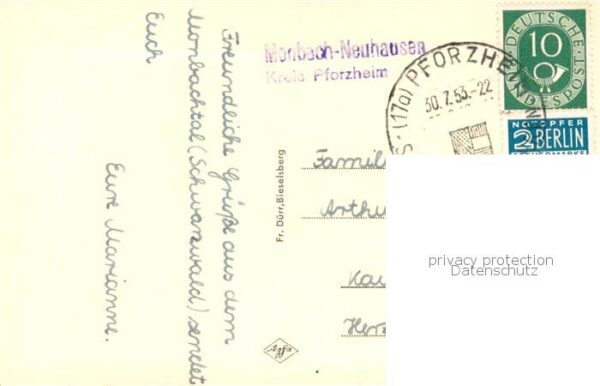 Freundliche Grüße aus dem
Monbachtal (Schwarzwald) sendet
Euch
Eure Marianne.
Fr. Dürr, Bieselsberg
Agfa
Monbach-Neuhausen
Kreis Pforzheim
(17a) PFORZHEIM
30.7.53.-22
DEUTSCHE
10
BUNDESPOST
NOTOPFER
2 BERLIN
STEUERMARKE
Famili
Arthu
Kau
Herr
privacy protection
Datenschutz